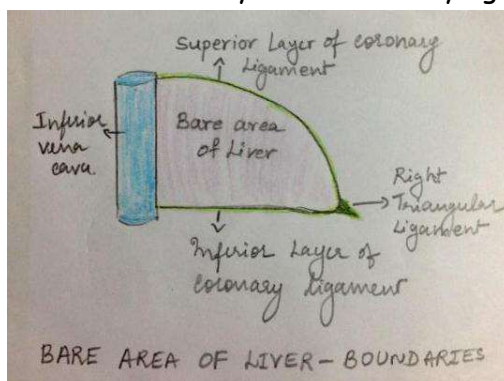 Superior Layer of coronary
Ligament
Inferior
vena
cava.
Bare area
of Liver
Right
Triangular
Ligament
Inferior Layer of
coronary ligament
BARE AREA OF LIVER - BOUNDARIES